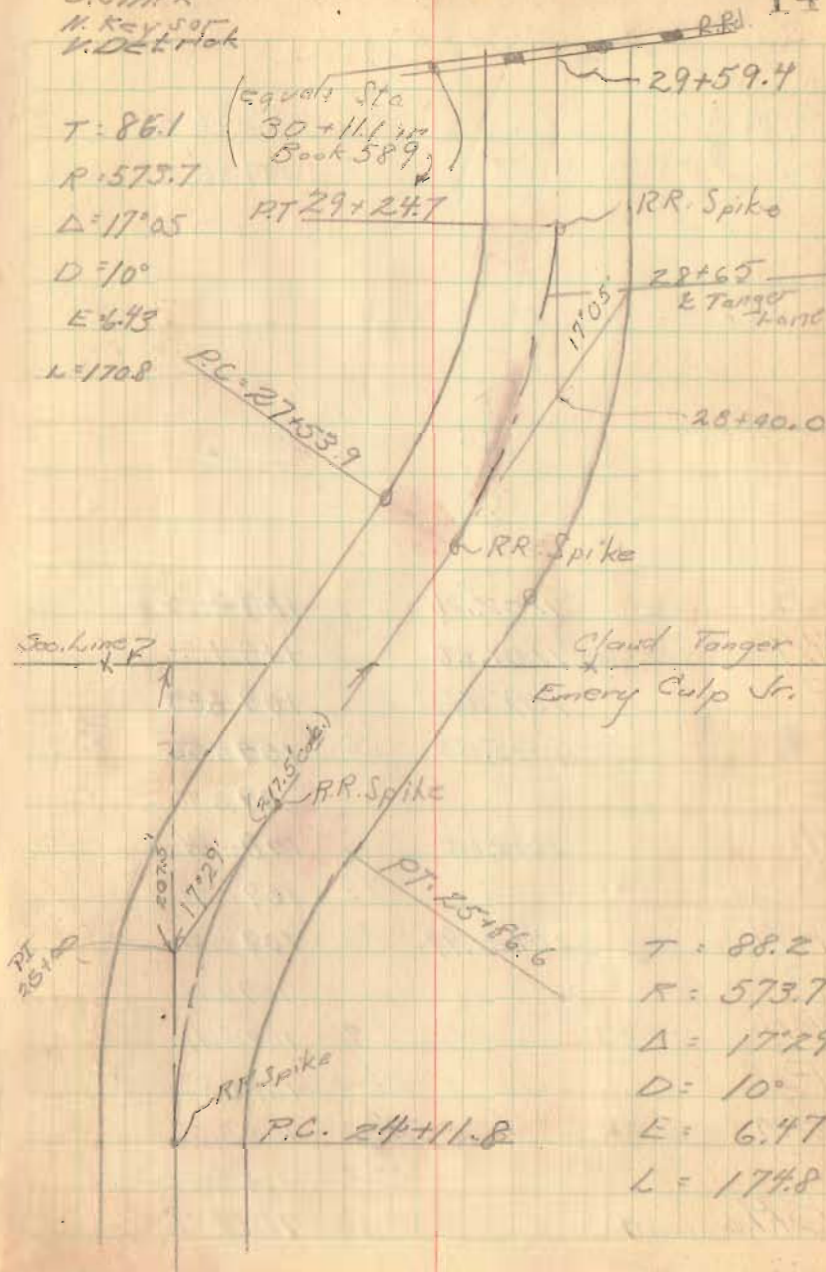 N. Keysor
V. Detrick
R.Rd.
29+59.4
(equals Sta
30+11.1 in
Book 589)
T = 86.1
R = 573.7
Δ = 17°05
D = 10°
E = 6.43
L = 170.8
P.T 29+24.7
RR. Spike
28+65
℄ Tanger
17°05'
28+40.0
P.C. = 27+53.9
RR. Spike
Sec. Line
Claud Tanger
Emery Culp Jr.
(217.5' Calc.)
R.R. Spike
207.5'
17°29'
P.T. 25+86.6
PI
25+00
RR. Spike
P.C. 24+11.8
T = 88.2
R = 573.7
Δ = 17°29
D = 10°
E = 6.47
L = 174.8